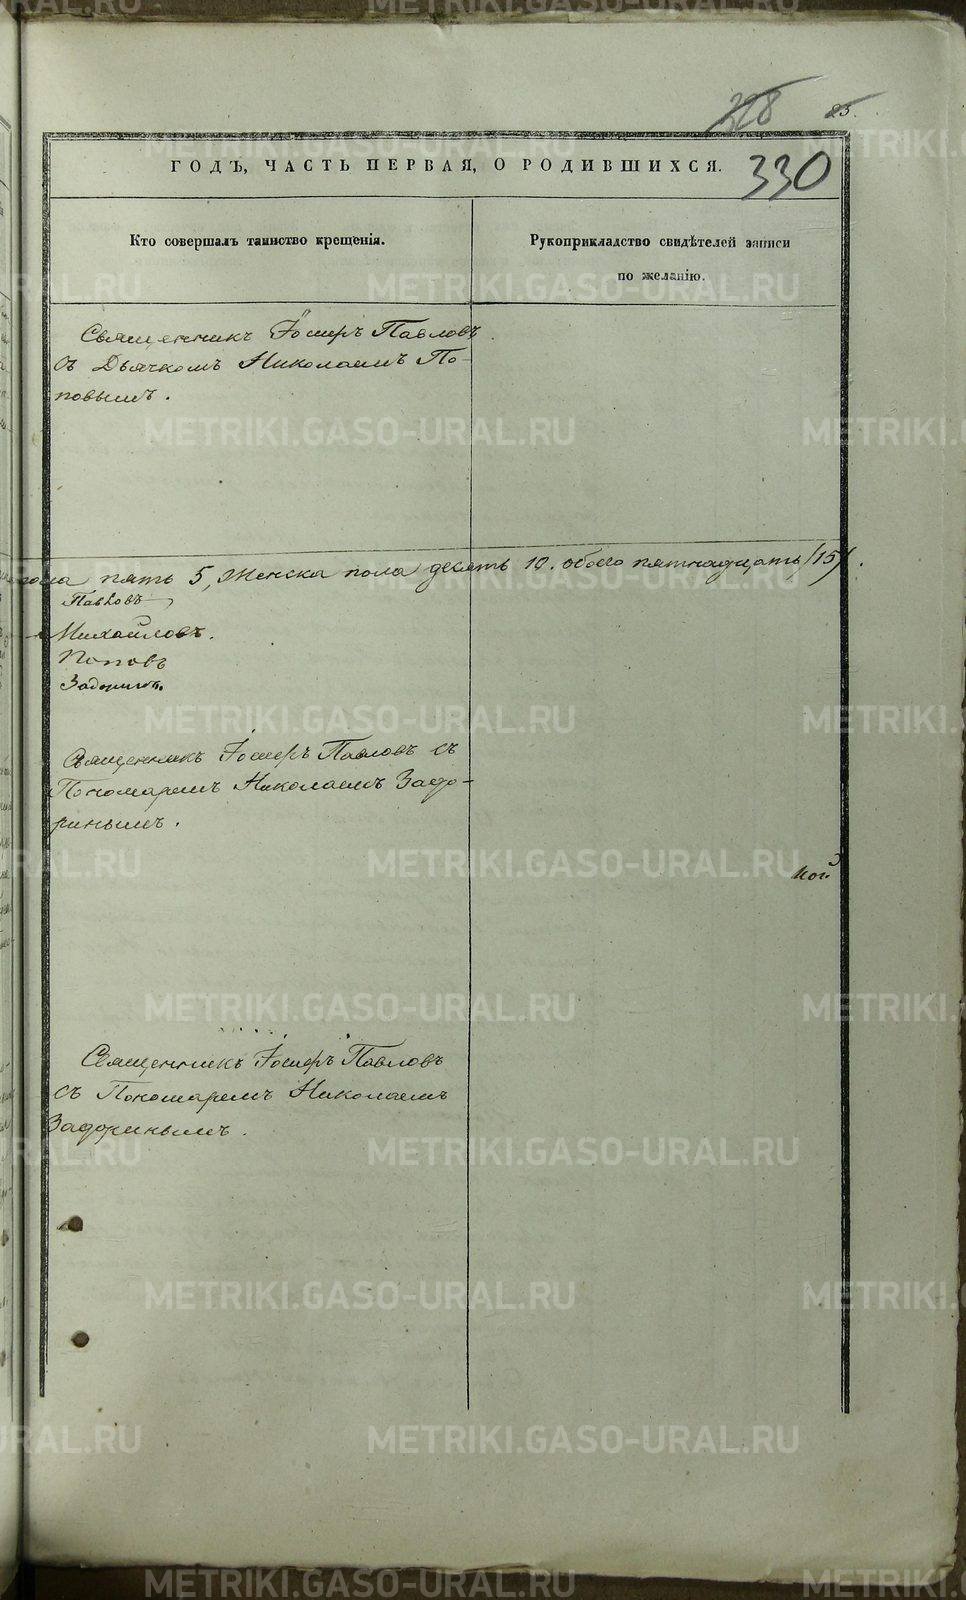 328 85.
330
ГОДЪ, ЧАСТЬ ПЕРВАЯ, О РОДИВШИХСЯ.
Кто совершалъ таинство крещенія.
Рукоприкладство свидѣтелей записи
по желанію.
Священникъ Іосифъ Павловъ
съ Дьячкомъ Николаемъ По-
повымъ.
пола пять 5, Женска пола десять 10. обоего пятнадцать /15/.
Павловъ
Михайловъ.
Поповъ
Задоринъ.
Священникъ Іосифъ Павловъ съ
Пономаремъ Николаемъ Задо-
ринымъ.
кой
Священникъ Іосифъ Павловъ
съ Пономаремъ Николаемъ
Задоринымъ.
METRIKI.GASO-URAL.RU